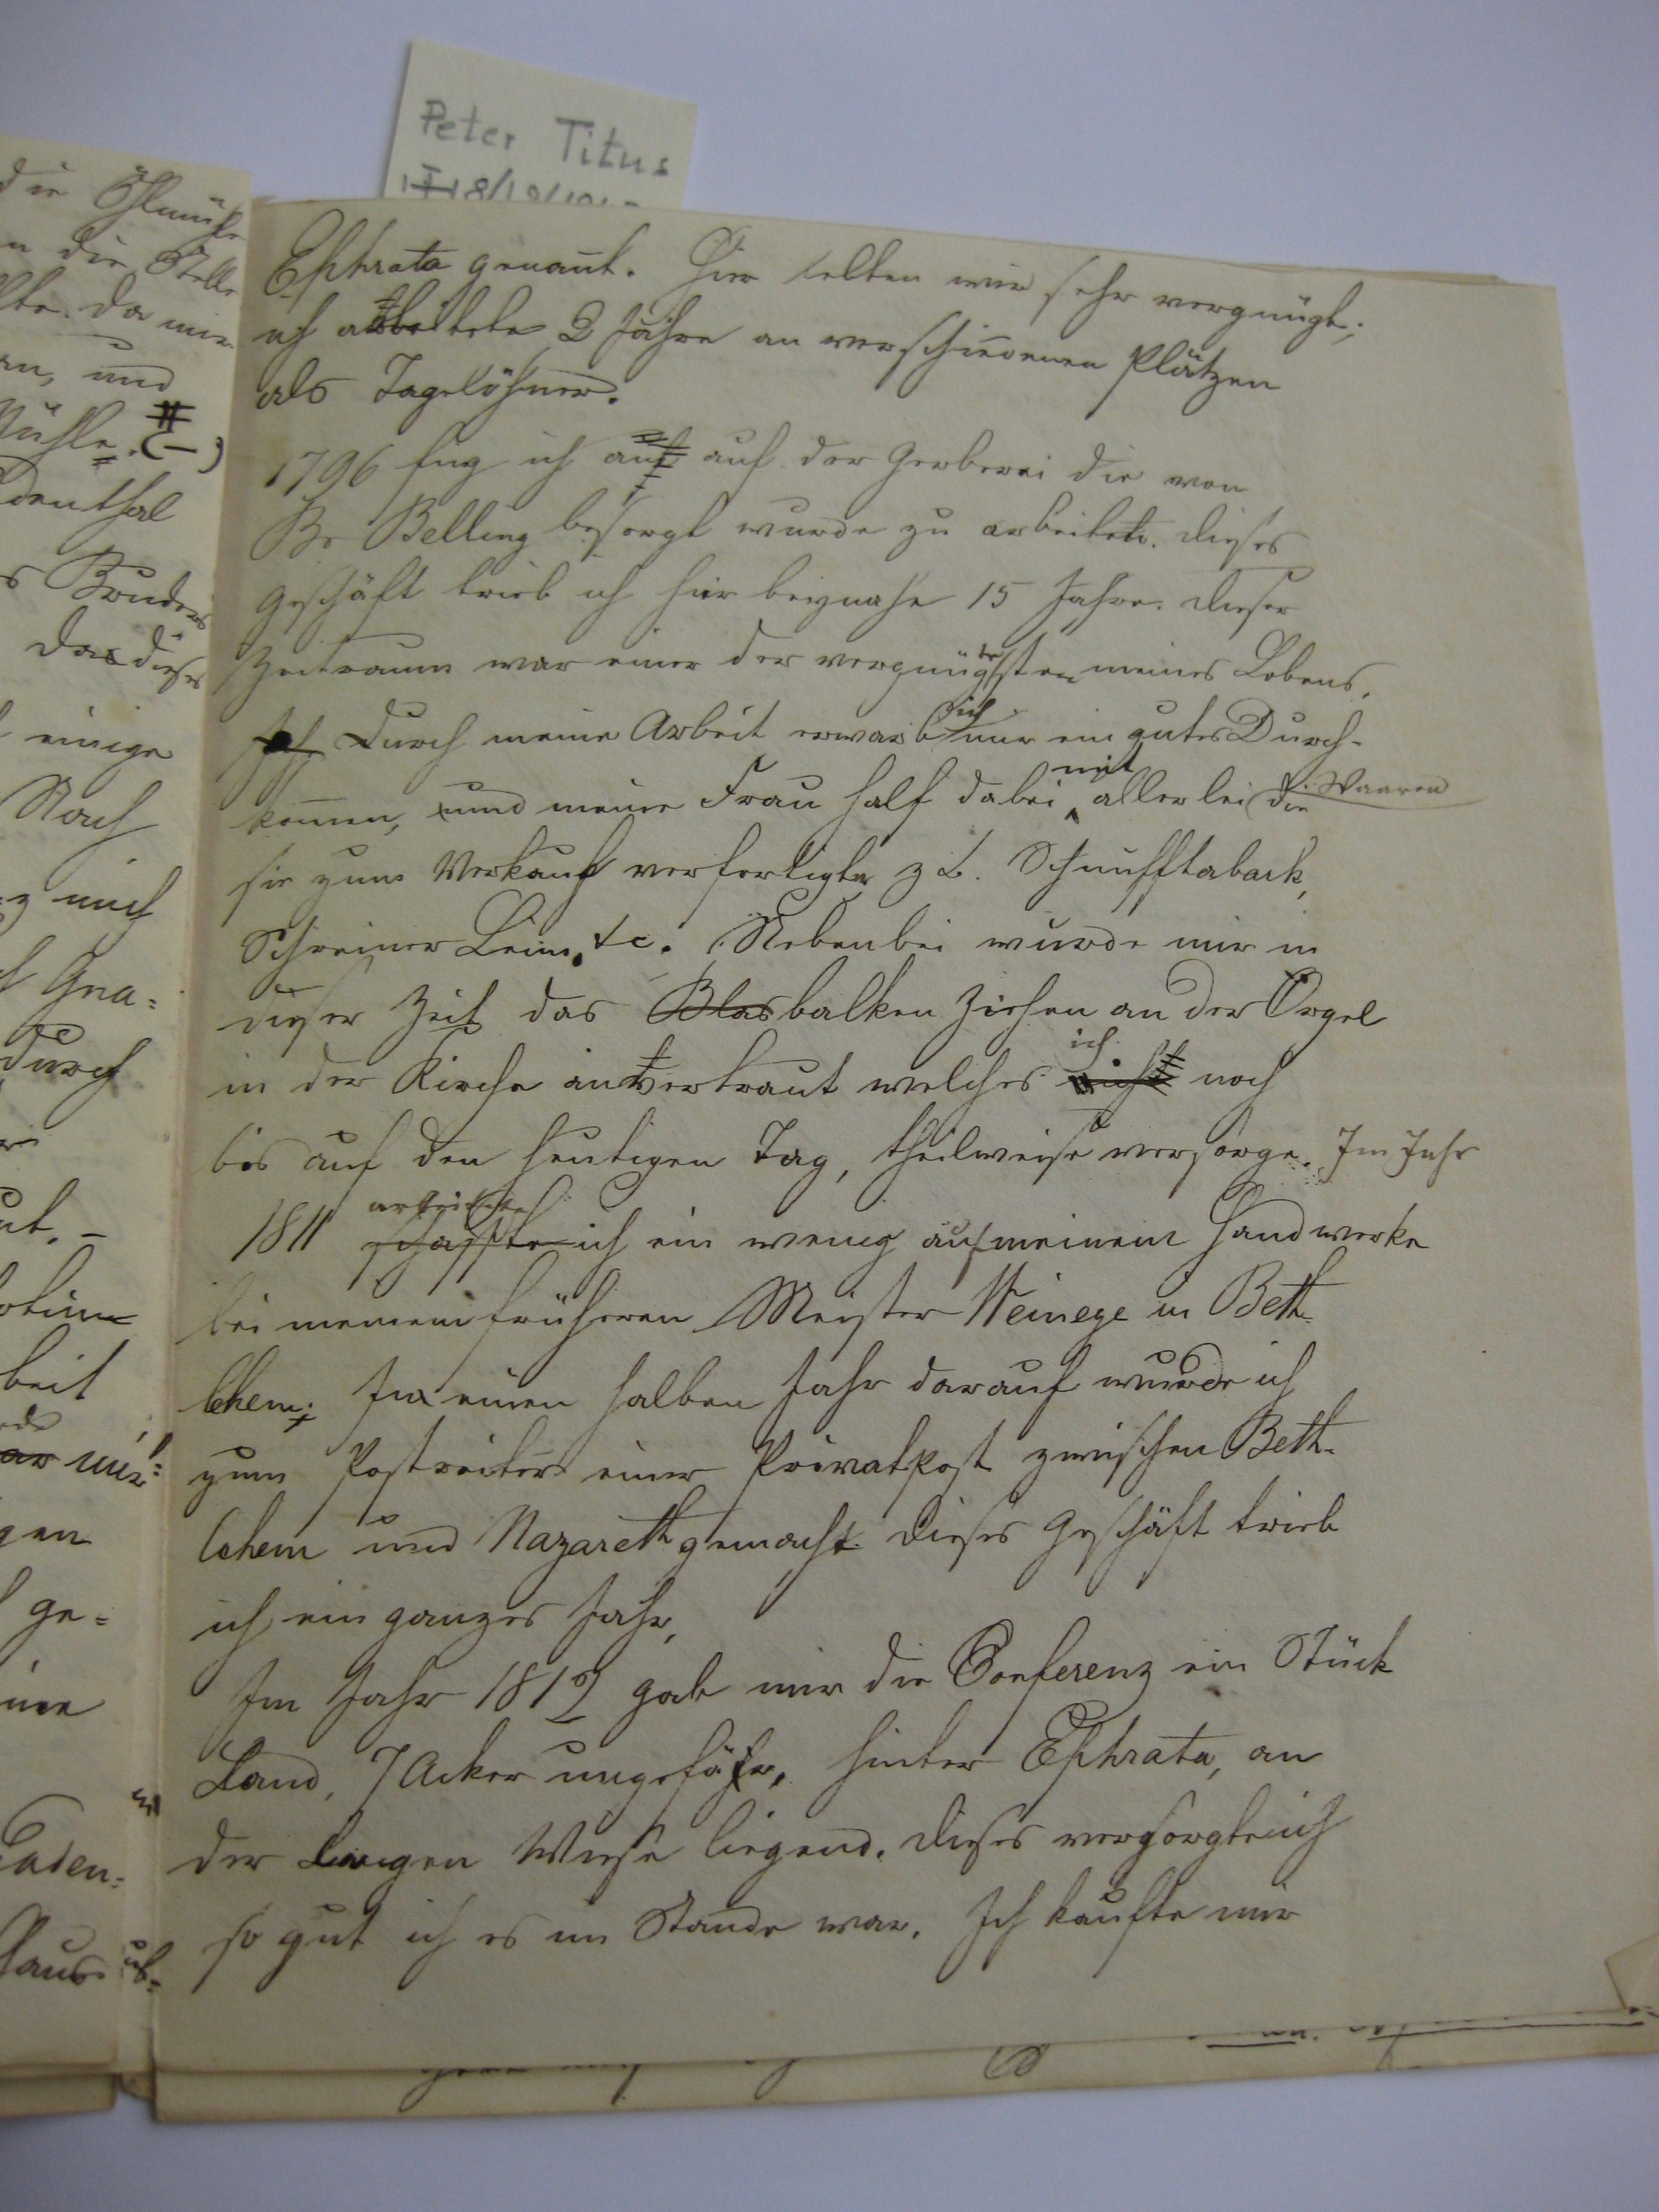 Peter Titus
die Öhlmühle
die Stelle
da mir
und
Mühle. (–)
Bruders
das dieses
einige
Nach
mich
Gna=
durch
beit
ge=
Ephrata genannt. Hier lebten wir sehr vergnügt;
ich arbeitete 2 Jahre an verschiedenen Plätzen
als Tagelöhner.
1796 fing ich auf der Gerberei die von
Br Belling besorgt wurde zu arbeiten. Dieses
Geschäft trieb ich hier beynahe 15 Jahre. Dieser
Zeitraum war einer der vergnügtesten meines Lebens.
Durch meine Arbeit erwarb ich mir ein gutes Durch-
kommen, und meine Frau half dabei mit allerlei Waaren die
sie zum Verkauf verfertigte z B. Schnupftaback,
Schreiner Leim, &c. Nebenbei wurde mir in
dieser Zeit das Blasbalken Ziehen an der Orgel
in der Kirche anvertraut welches ich noch
bis auf den heutigen Tag, theilweise versorge. Im Jahr
1811 arbeitete ich ein wenig auf meinem Handwerke
bei meinem früheren Meister Weinege in Beth-
lehem; In einem halben Jahr darauf wurde ich
zum Postreiter einer Privatpost zwischen Beth-
lehem und Nazareth gemacht. Dieses Geschäft trieb
ich ein ganzes Jahr,
Im Jahr 1812 gab mir die Conferenz ein Stück
Land, 7 Acker ungefähr, hinter Ephrata, an
der langen Wiese liegend. Dieses versorgte ich
so gut ich es im Stande war. Ich kaufte mir